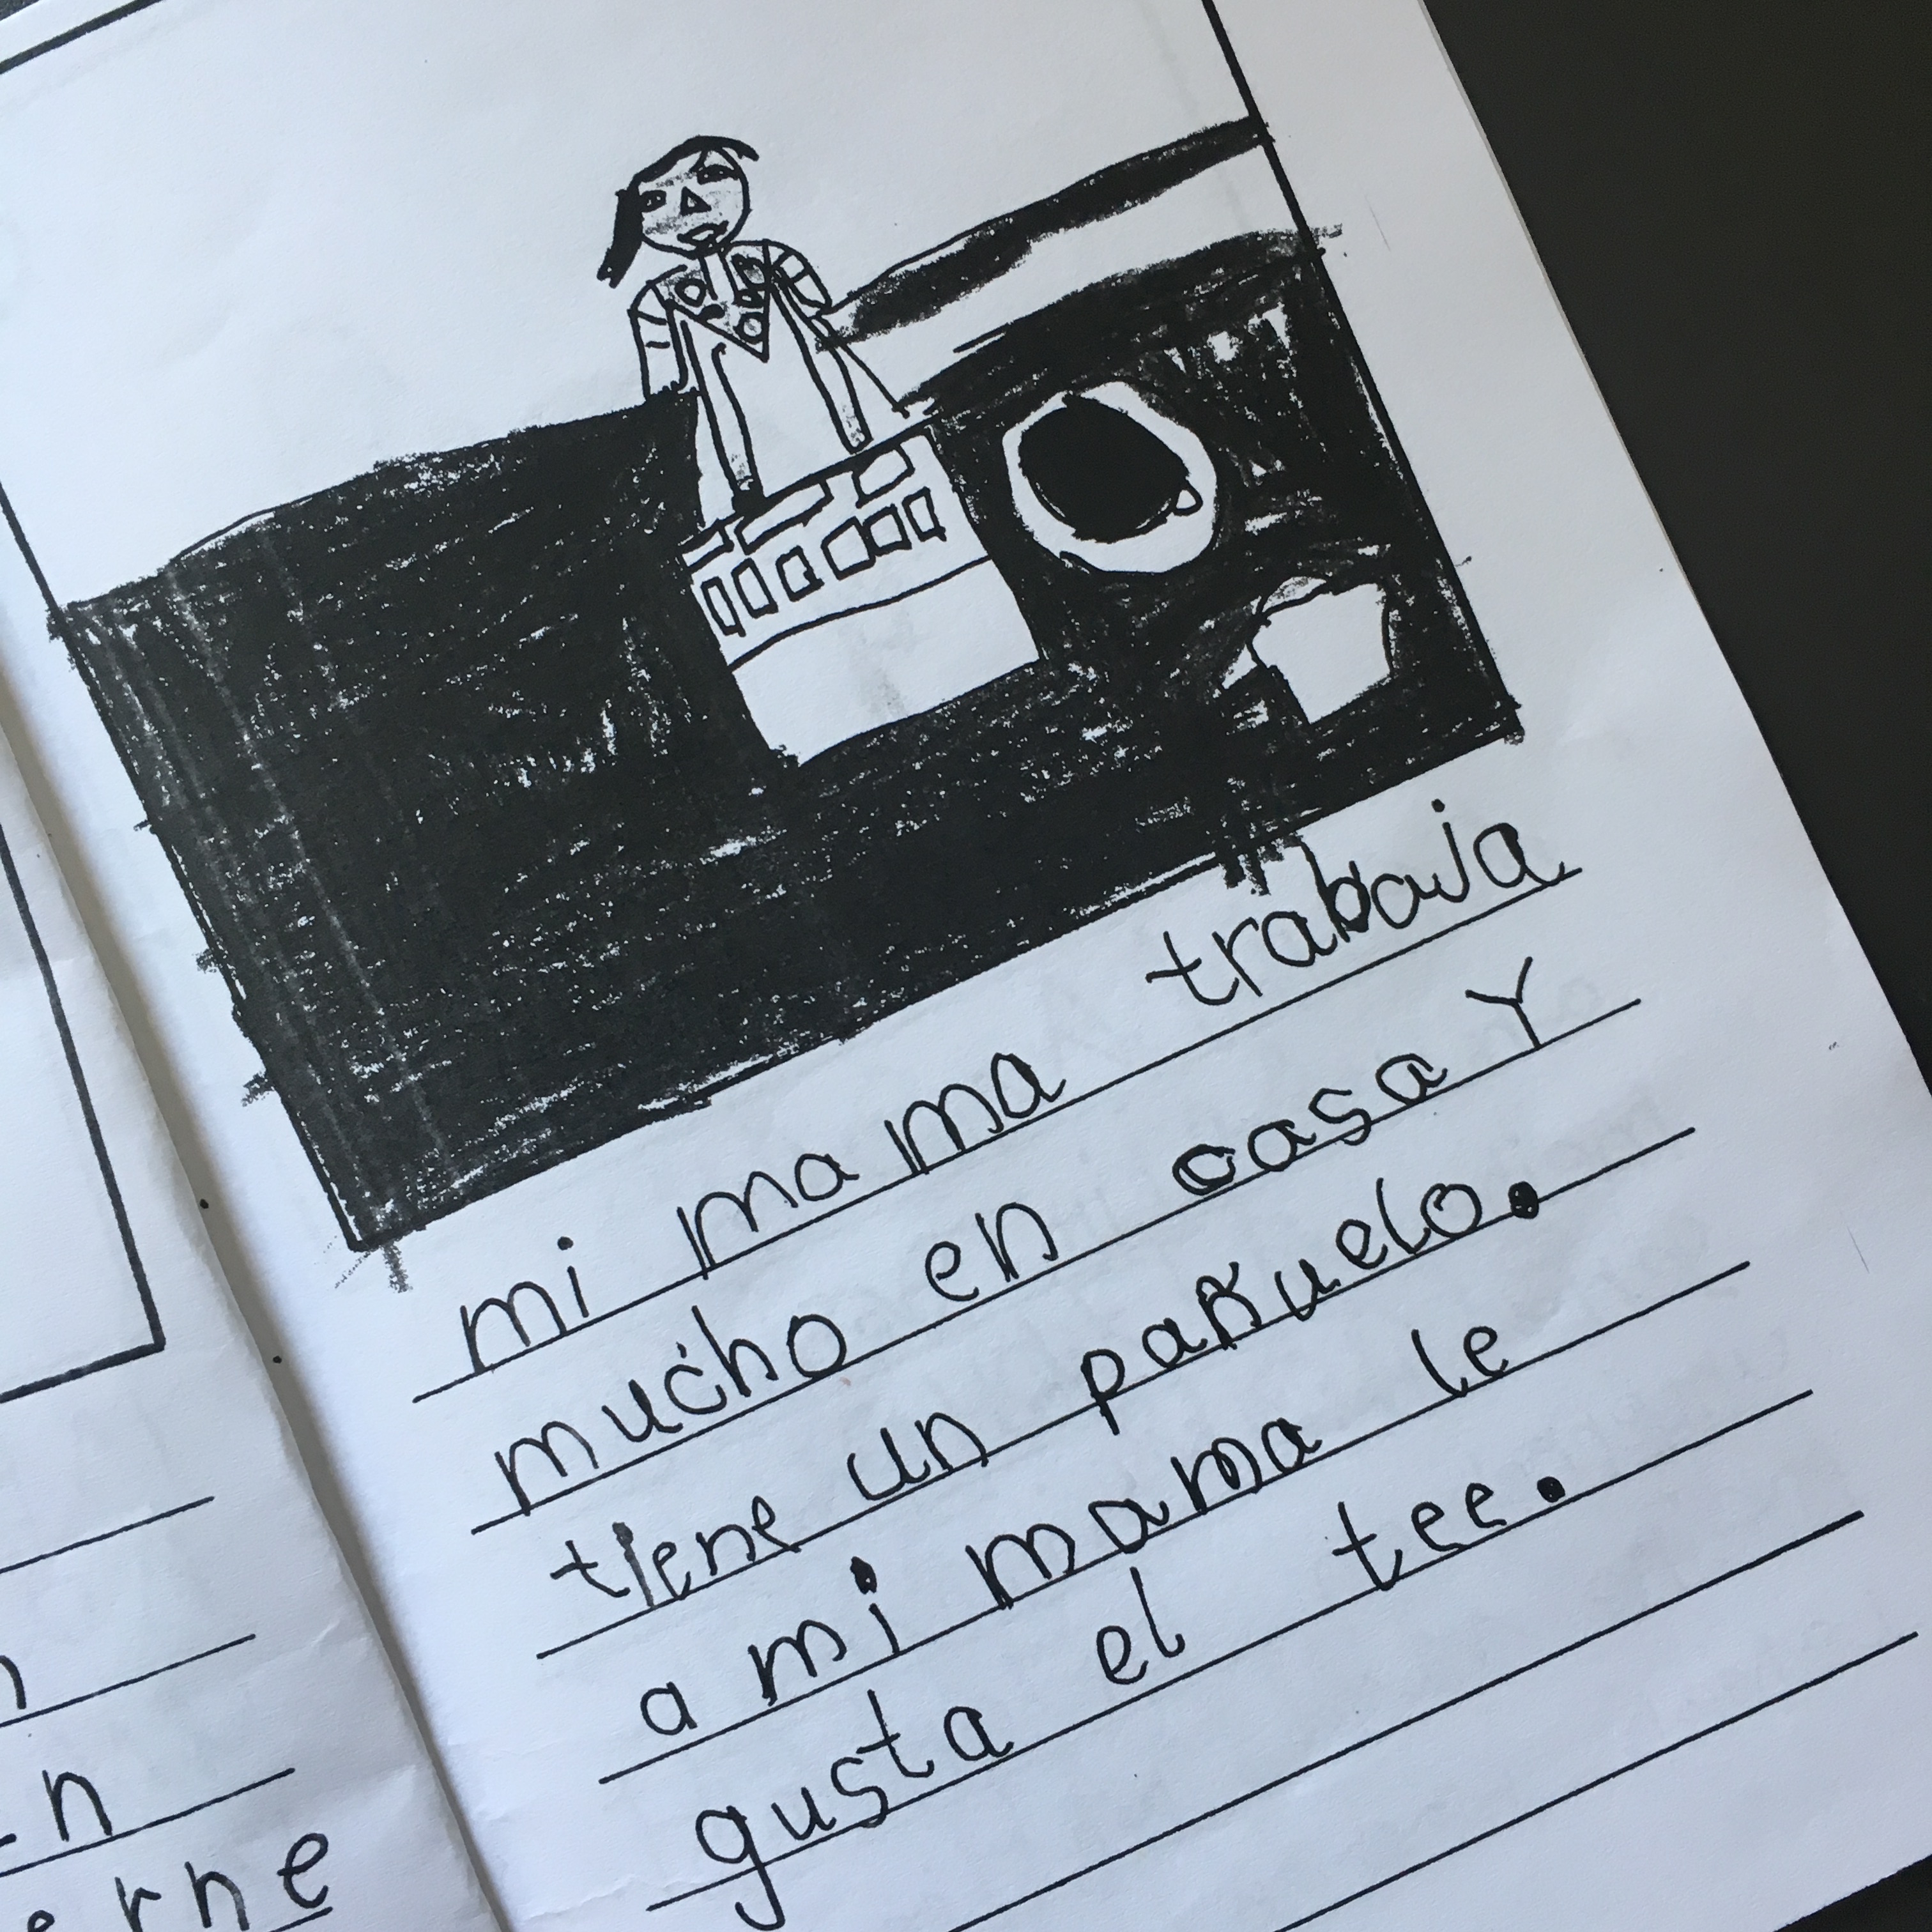 mi mama trabaja
mucho en casa Y
tiene un pañuelo.
a mi mama le
gusta el tee.